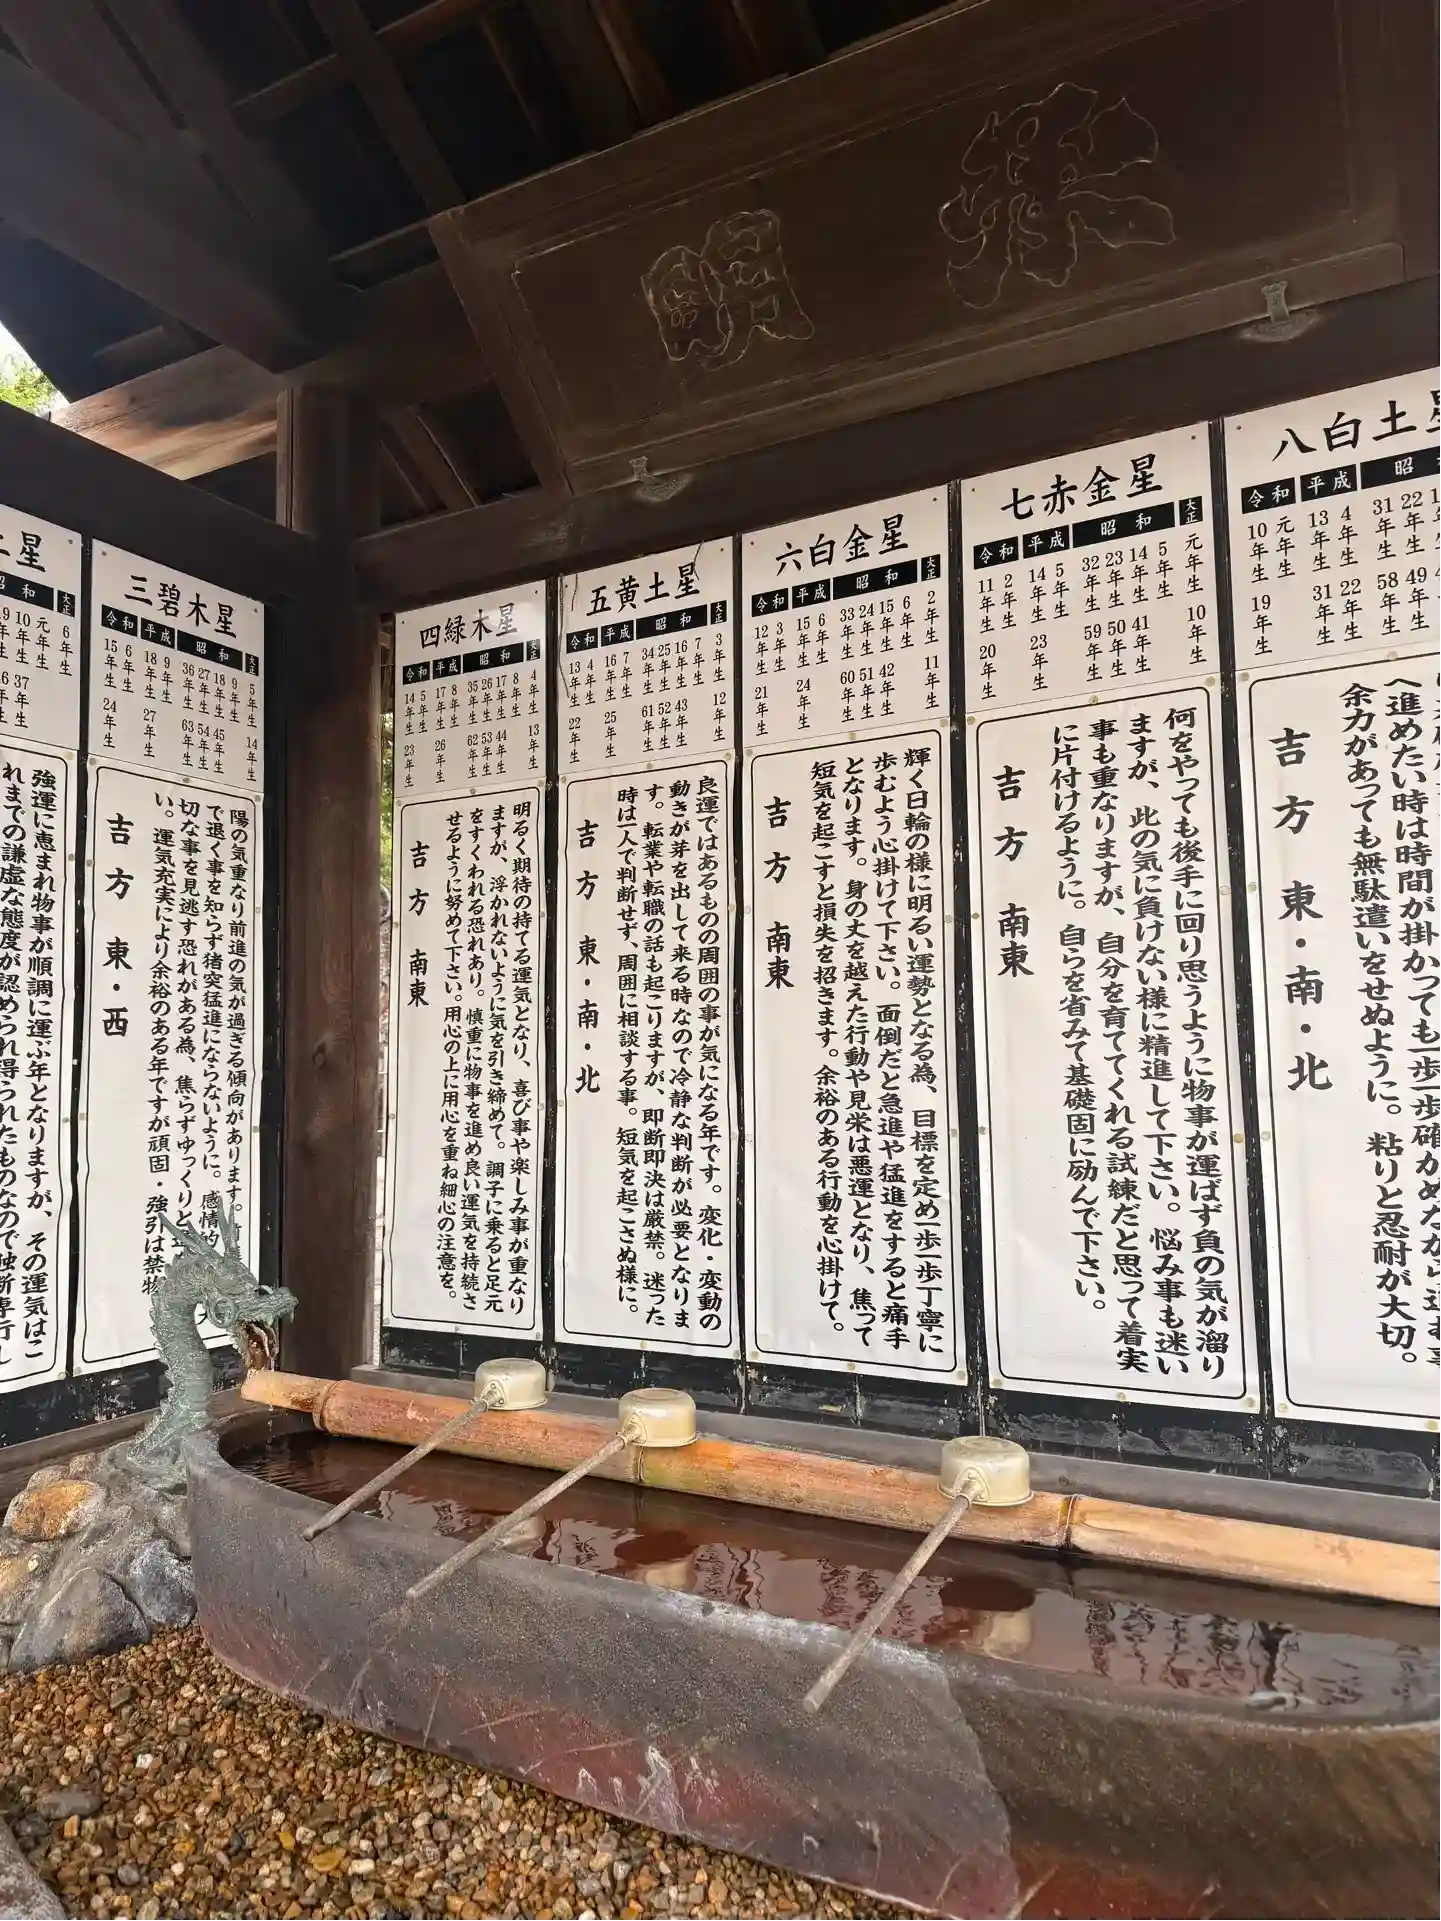 明
土星
昭和
大正
6年生
元年生
10年生 37年生
強運に恵まれ物事が順調に運ぶ年となりますが、その運気はこ
れまでの謙虚な態度が認められ得られたものなので独断専行し
三碧木星
令和 平成 昭和 大正
5年生 14年生
9年生
18年生 45年生
27年生 54年生
36年生 63年生
9年生
18年生 27年生
6年生
15年生 24年生
陽の気重なり前進の気が過ぎる傾向があります。
で退く事を知らず猪突猛進にならないように。感情的
切な事を見逃す恐れがある為、焦らずゆっくりと
い。運気充実により余裕のある年ですが頑固・強引は禁物
吉方 東・西
四緑木星
令和 平成 昭和 大正
4年生 13年生
8年生
17年生 44年生
26年生 53年生
35年生 62年生
8年生
17年生 26年生
5年生
14年生 23年生
明るく期待の持てる運気となり、喜び事や楽しみ事が重なり
ますが、浮かれないように気を引き締めて。調子に乗ると足元
をすくわれる恐れあり。慎重に物事を進め良い運気を持続さ
せるように努めて下さい。用心の上に用心を重ね細心の注意を。
吉方 南東
五黄土星
令和 平成 昭和 大正
3年生 12年生
7年生
16年生 43年生
25年生 52年生
34年生 61年生
7年生
16年生 25年生
4年生
13年生 22年生
良運ではあるものの周囲の事が気になる年です。変化・変動の
動きが芽を出して来る時なので冷静な判断が必要となりま
す。転業や転職の話も起こりますが、即断即決は厳禁。迷った
時は一人で判断せず、周囲に相談する事。短気を起こさぬ様に。
吉方 東・南・北
六白金星
令和 平成 昭和 大正
2年生 11年生
6年生
15年生 42年生
24年生 51年生
33年生 60年生
6年生
15年生 24年生
3年生
12年生 21年生
輝く日輪の様に明るい運勢となる為、目標を定め一歩一歩丁寧に
歩むよう心掛けて下さい。面倒だと急進や猛進をすると痛手
となります。身の丈を越えた行動や見栄は悪運となり、焦って
短気を起こすと損失を招きます。余裕のある行動を心掛けて。
吉方 南東
七赤金星
令和 平成 昭和 大正
元年生 10年生
5年生
14年生 41年生
23年生 50年生
32年生 59年生
5年生
14年生 23年生
2年生
11年生 20年生
何をやっても後手に回り思うように物事が運ばず負の気が溜り
ますが、此の気に負けない様に精進して下さい。悩み事も迷い
事も重なりますが、自分を育ててくれる試練だと思って着実
に片付けるように。自らを省みて基礎固に励んで下さい。
吉方 南東
八白土星
令和 平成 昭
22年生 49年生
31年生 58年生
4年生
13年生 22年生 31年生
元年生
10年生 19年生
へ進めたい時は時間が掛かっても一歩一歩確かめながら進む事
余力があっても無駄遣いをせぬように。粘りと忍耐が大切。
吉方 東・南・北